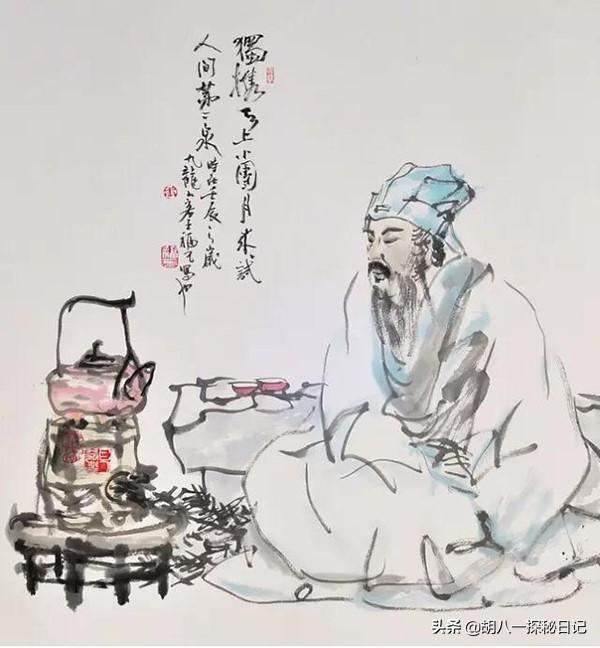 獨攜天上小團月來試
人间第二泉
時在壬辰之歲
九龍
寫
头条 @胡八一探秘日记